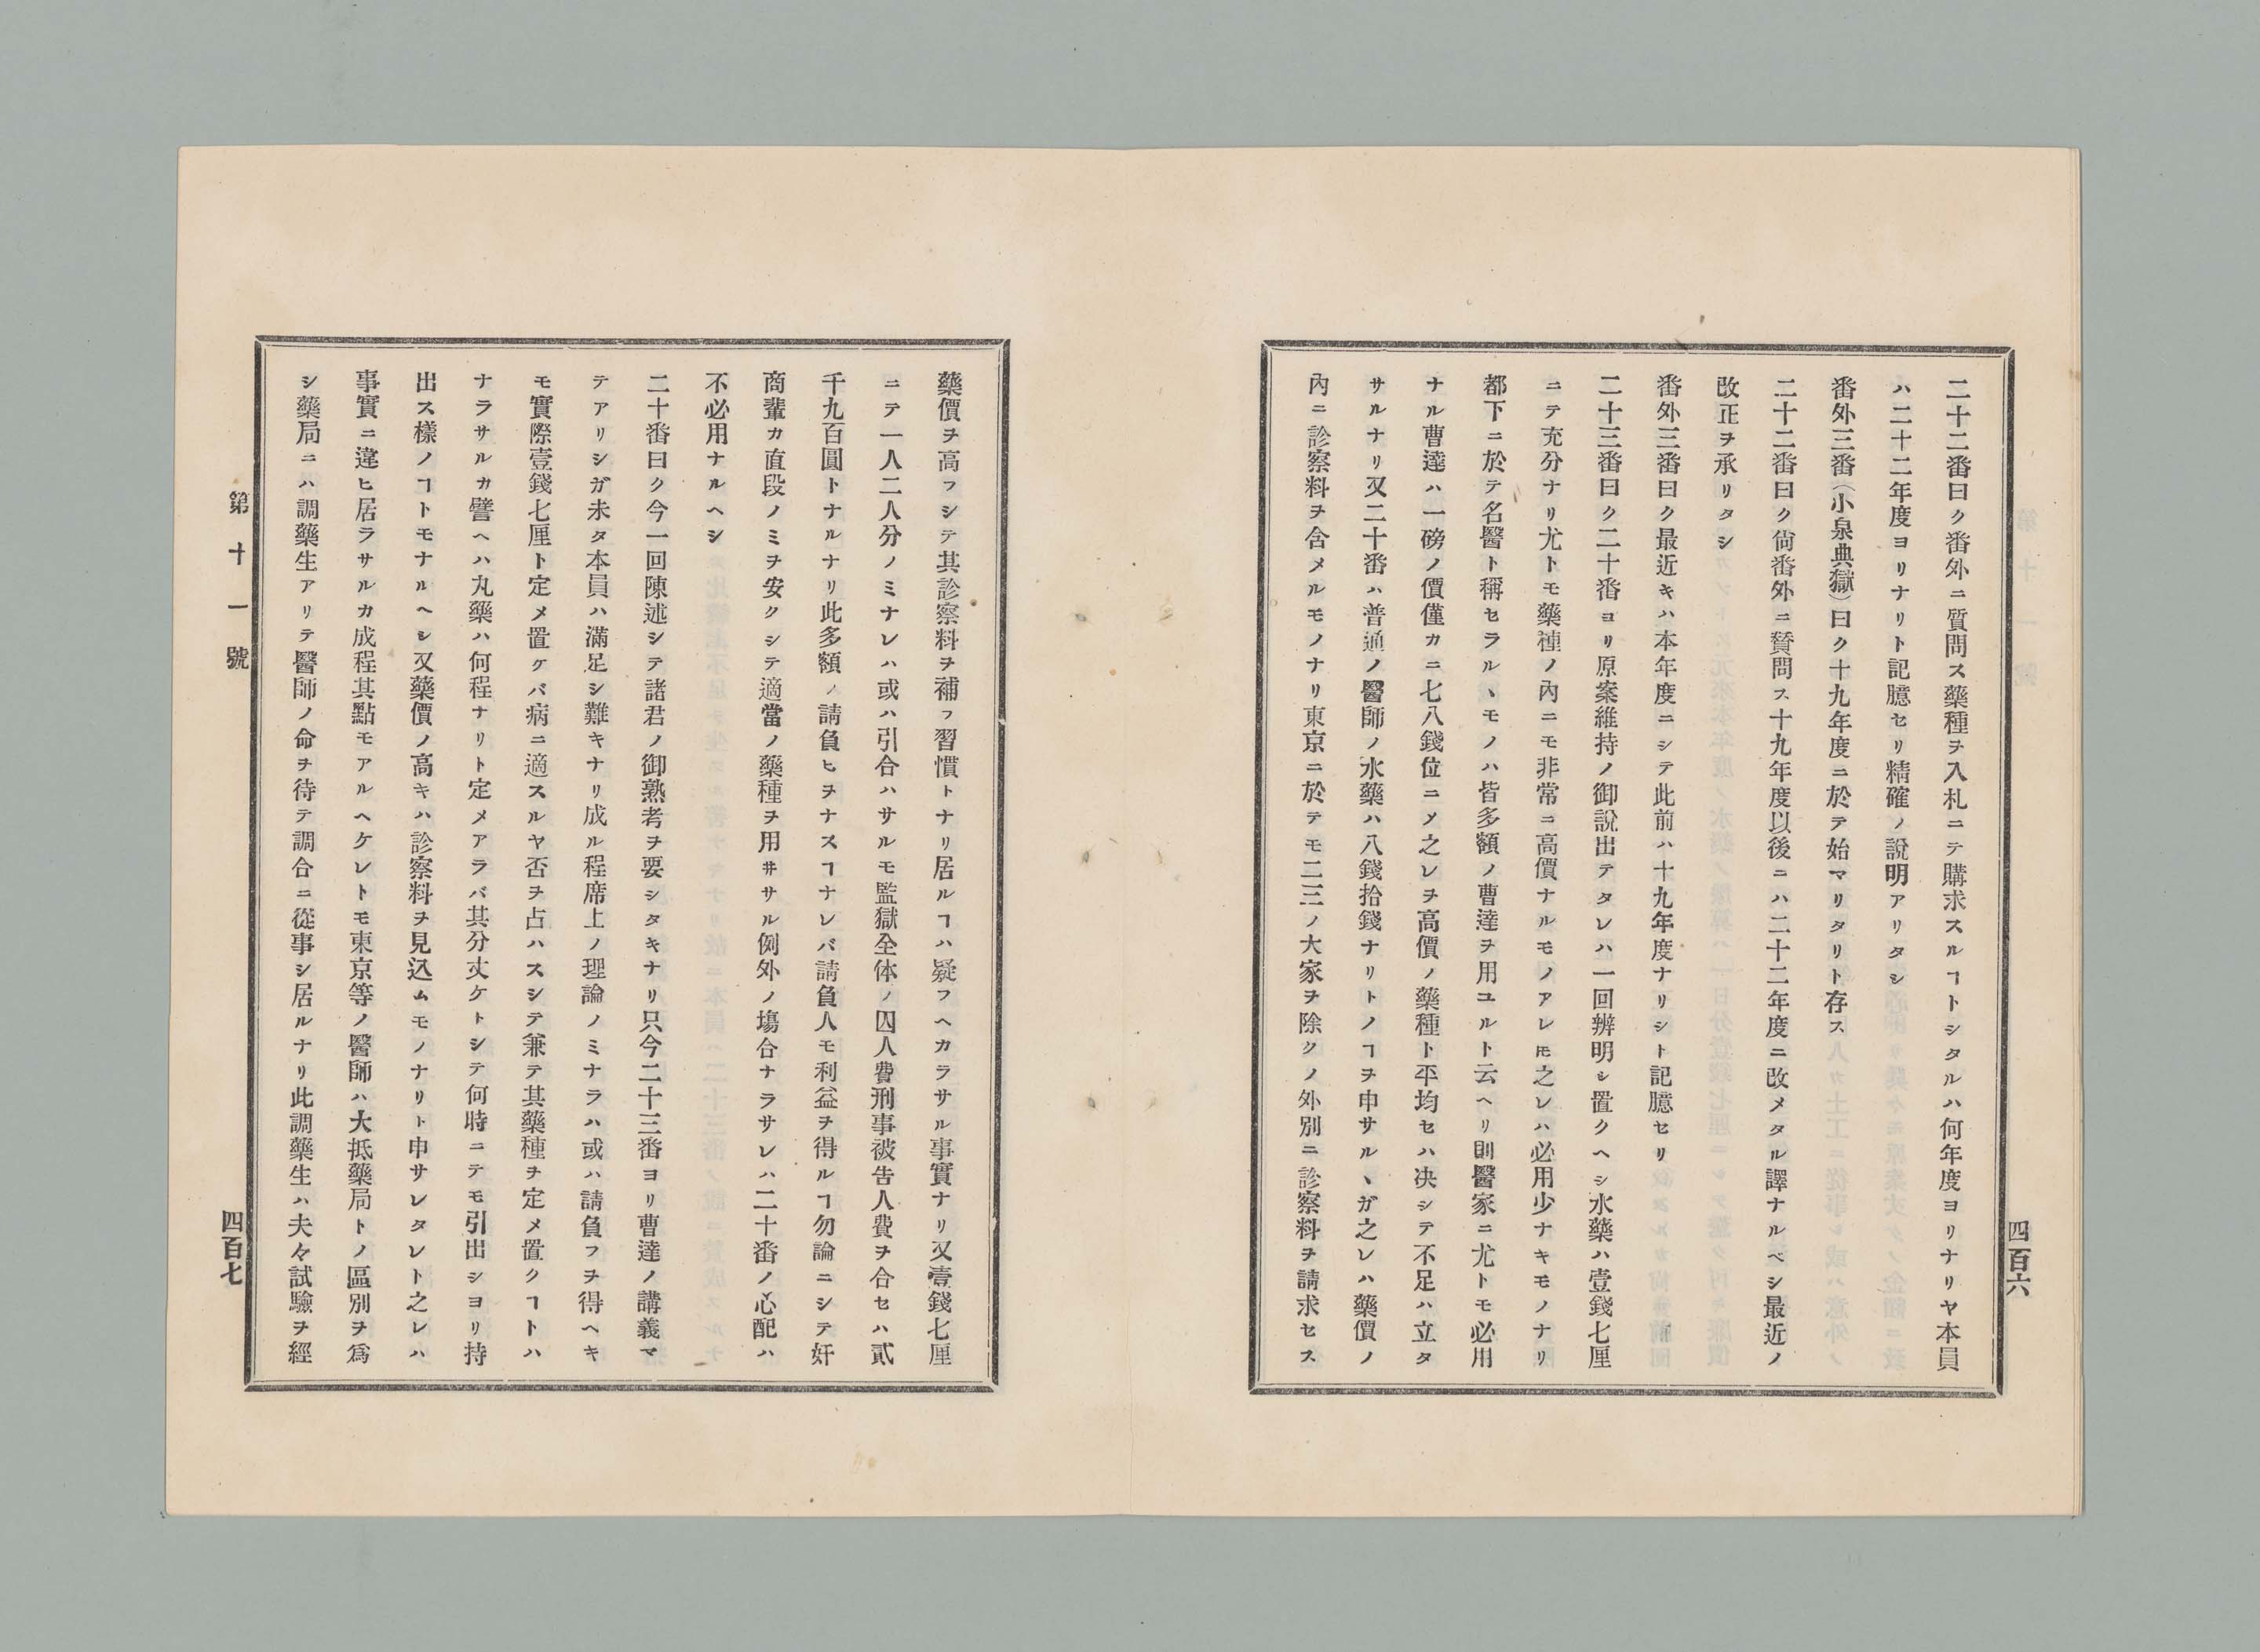 四百六
二十二番曰ク番外ニ質問ス藥種ヲ入札ニテ購求スルヿトシタルハ何年度ヨリナリヤ本員
ハ二十二年度ヨリナリト記臆セリ精確ノ說明アリタシ
番外三番（小泉典獄）曰ク十九年度ニ於テ始マリタリト存ス
二十二番曰ク尙番外ニ質問ス十九年度以後ニハ二十二年度ニ改メタル譯ナルベシ最近ノ
改正ヲ承リタシ
番外三番曰ク最近キハ本年度ニシテ此前ハ十九年度ナリシト記臆セリ
二十三番曰ク二十番ヨリ原案維持ノ御說出テタレハ一回辨明シ置クヘシ水藥ハ壹錢七厘
ニテ充分ナリ尤トモ藥種ノ內ニモ非常ニ高價ナルモノアレ𪜈之レハ必用少ナキモノナリ
都下ニ於テ名醫ト稱セラルヽモノハ皆多額ノ曹達ヲ用ユルト云ヘリ則醫家ニ尤トモ必用
ナル曹達ハ一磅ノ價僅カニ七八錢位ニ〆之レヲ高價ノ藥種ト平均セハ决シテ不足ハ立タ
サルナリ又二十番ハ普通ノ醫師ノ水藥ハ八錢拾錢ナリトノヿヲ申サルヽガ之レハ藥價ノ
內ニ診察料ヲ含メルモノナリ東京ニ於テモ二三ノ大家ヲ除クノ外別ニ診察料ヲ請求セス
藥價ヲ高フシテ其診察料ヲ補フ習慣トナリ居ルヿハ疑フヘカラサル事實ナリ又壹錢七厘
ニテ一人二人分ノミナレハ或ハ引合ハサルモ監獄全体ノ囚人費刑事被告人費ヲ合セハ貳
千九百圓トナルナリ此多額ノ請負ヒヲナスヿナレバ請負人モ利益ヲ得ルヿ勿論ニシテ奸
商輩カ直段ノミヲ安クシテ適當ノ藥種ヲ用ヰサル例外ノ塲合ナラサレハ二十番ノ心配ハ
不必用ナルヘシ
二十番曰ク今一回陳述シテ諸君ノ御熟考ヲ要シタキナリ只今二十三番ヨリ曹達ノ講義マ
テアリシガ未タ本員ハ滿足シ難キナリ成ル程席上ノ理論ノミナラハ或ハ請負フヲ得ヘキ
モ實際壹錢七厘ト定メ置ケバ病ニ適スルヤ否ヲ占ハスシテ兼テ其藥種ヲ定メ置クヿトハ
ナラサルカ譬ヘハ丸藥ハ何程ナリト定メアラバ其分丈ケトシテ何時ニテモ引出シヨリ持
出ス樣ノヿトモナルヘシ又藥價ノ高キハ診察料ヲ見込ムモノナリト申サレタレト之レハ
事實ニ違ヒ居ラサルカ成程其點モアルヘケレトモ東京等ノ醫師ハ大抵藥局トノ區別ヲ爲
シ藥局ニハ調藥生アリテ醫師ノ命ヲ待テ調合ニ從事シ居ルナリ此調藥生ハ夫々試驗ヲ經
第十一號
四百七